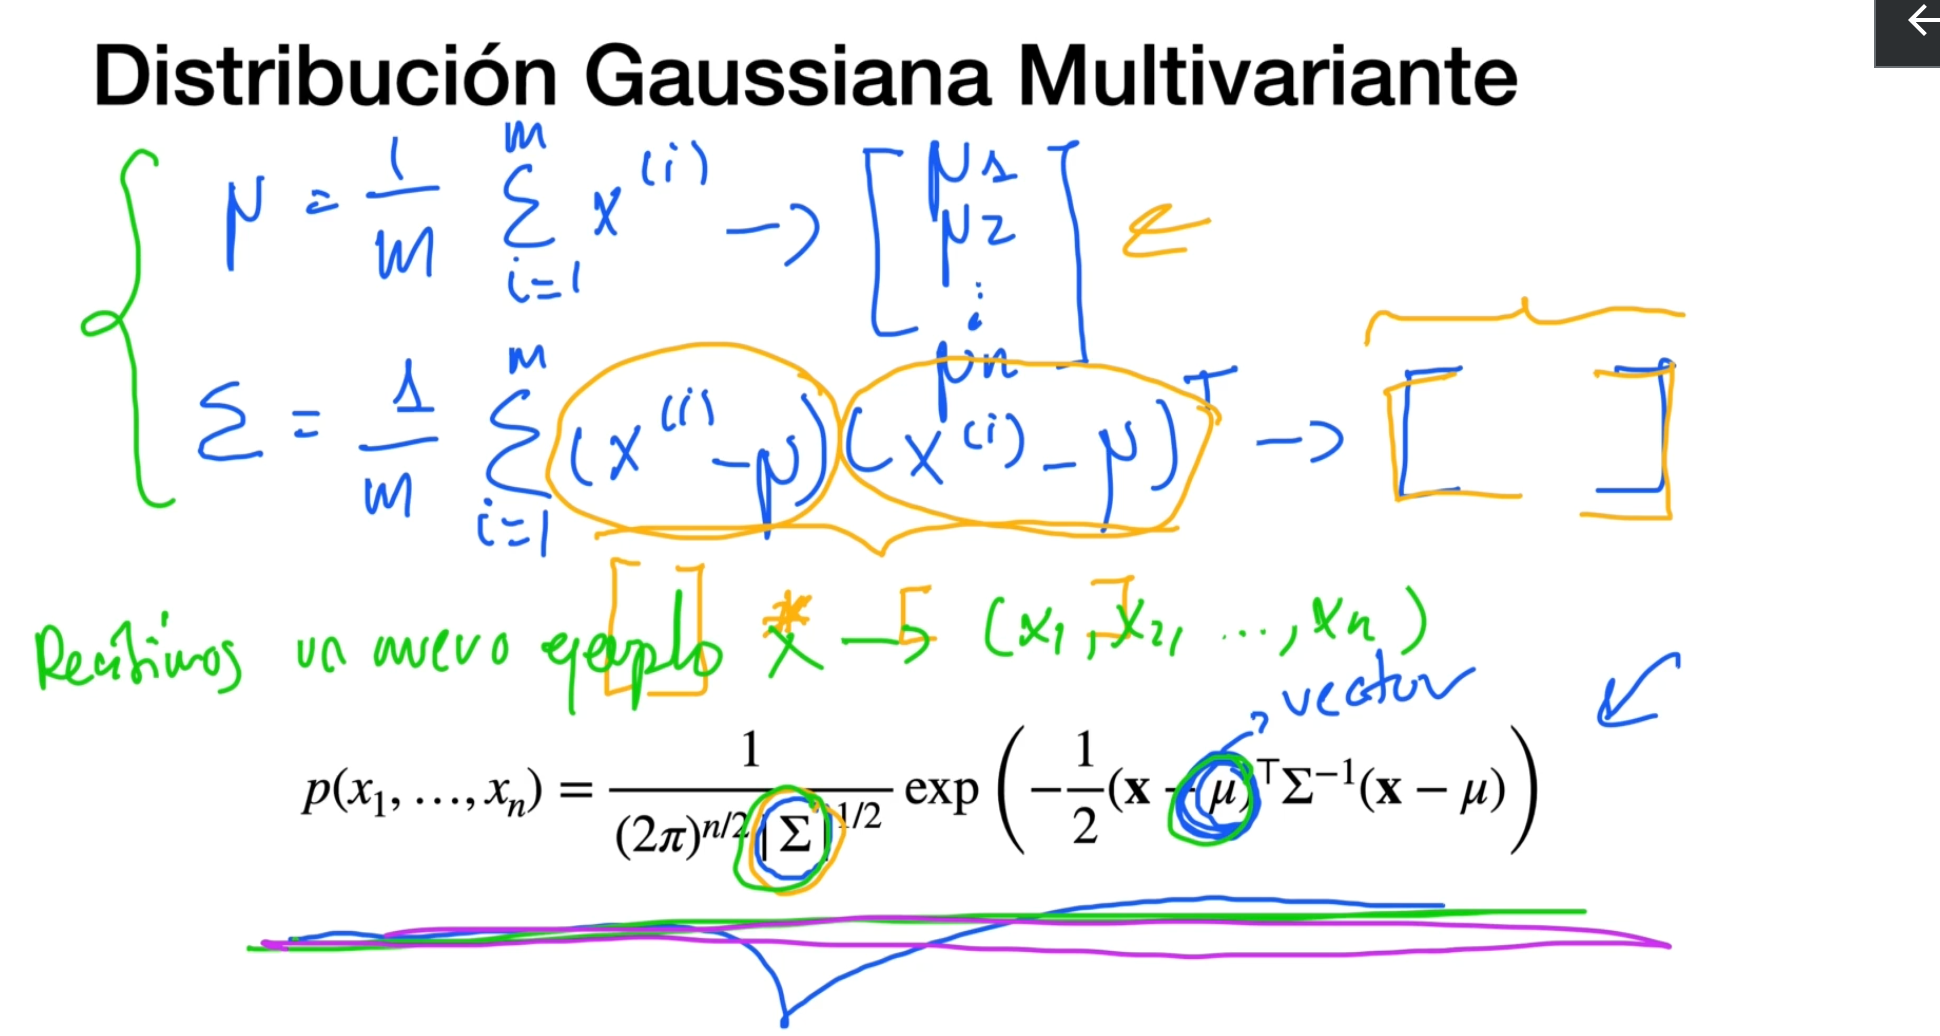 Distribución Gaussiana Multivariante
μ = 1/m Σ_{i=1}^{m} x^{(i)} → [μ1 μ2 ⋮ μn]
Σ = 1/m Σ_{i=1}^{m} (x^{(i)} - μ)(x^{(i)} - μ)^T → [ ]
[ ] * [ ]
Recibimos un nuevo ejemplo x → (x1, x2, ..., xn)
vector
p(x₁, …, xₙ) = 1 / ((2π)^{n/2} |Σ|^{1/2}) exp(−1/2 (x − μ)^⊤ Σ^{−1} (x − μ))